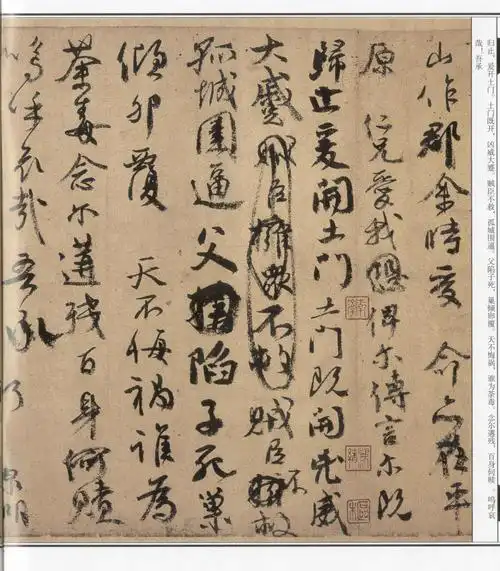 归止，爰开土门。土门既开，凶威大蹙。贼臣不救，孤城围逼，父陷子死，巢倾卵覆。天不悔祸，谁为荼毒。念尔遘残，百身何赎。呜呼哀
哉！吾承
山作郡余時受命亦在平
原仁兄愛我恐俾尔傳言尔既
歸止爰開土門土門既開兇威
大蹙賊臣擁衆不救賊臣不救
孤城圍逼父陷子死巢
傾卵覆天不悔禍誰為
荼毒念尔遘殘百身何贖
嗚乎哀哉吾承